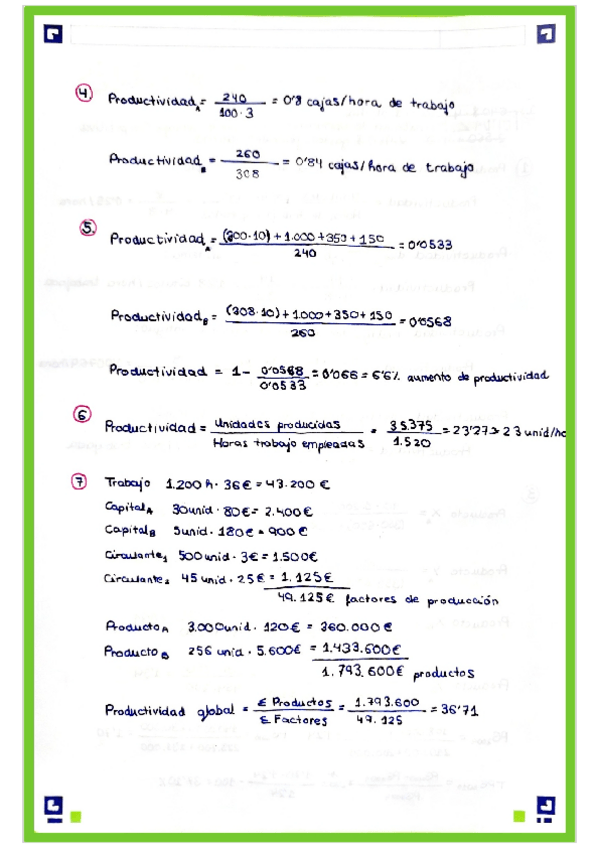 4 Productividad A = 240 / 100·3 = 0'8 cajas/hora de trabajo
Productividad B = 260 / 308 = 0'84 cajas/hora de trabajo
5 Productividad A = (300·10) + 1.000 + 350 + 150 / 240 = 0'0533
Productividad B = (308·10) + 1.000 + 350 + 150 / 260 = 0'0568
Productividad = 1 - 0'0568 / 0'0533 = 0'066 = 6'6% aumento de productividad
6 Productividad = Unidades producidas / Horas trabajo empleadas = 35.375 / 1.520 = 23'27 > 23 unid/ho
7 Trabajo 1.200 h · 36€ = 43.200 €
Capital A 30 unid · 80€ = 2.400€
Capital B 5 unid · 180€ = 900€
Circulante 1 500 unid · 3€ = 1.500€
Circulante 2 45 unid · 25€ = 1.125€
49.125€ factores de producción
Producto A 3.000 unid · 120€ = 360.000€
Producto B 256 unid · 5.600€ = 1.433.600€
1.793.600€ productos
Productividad global = Σ Productos / Σ Factores = 1.793.600 / 49.125 = 36'71